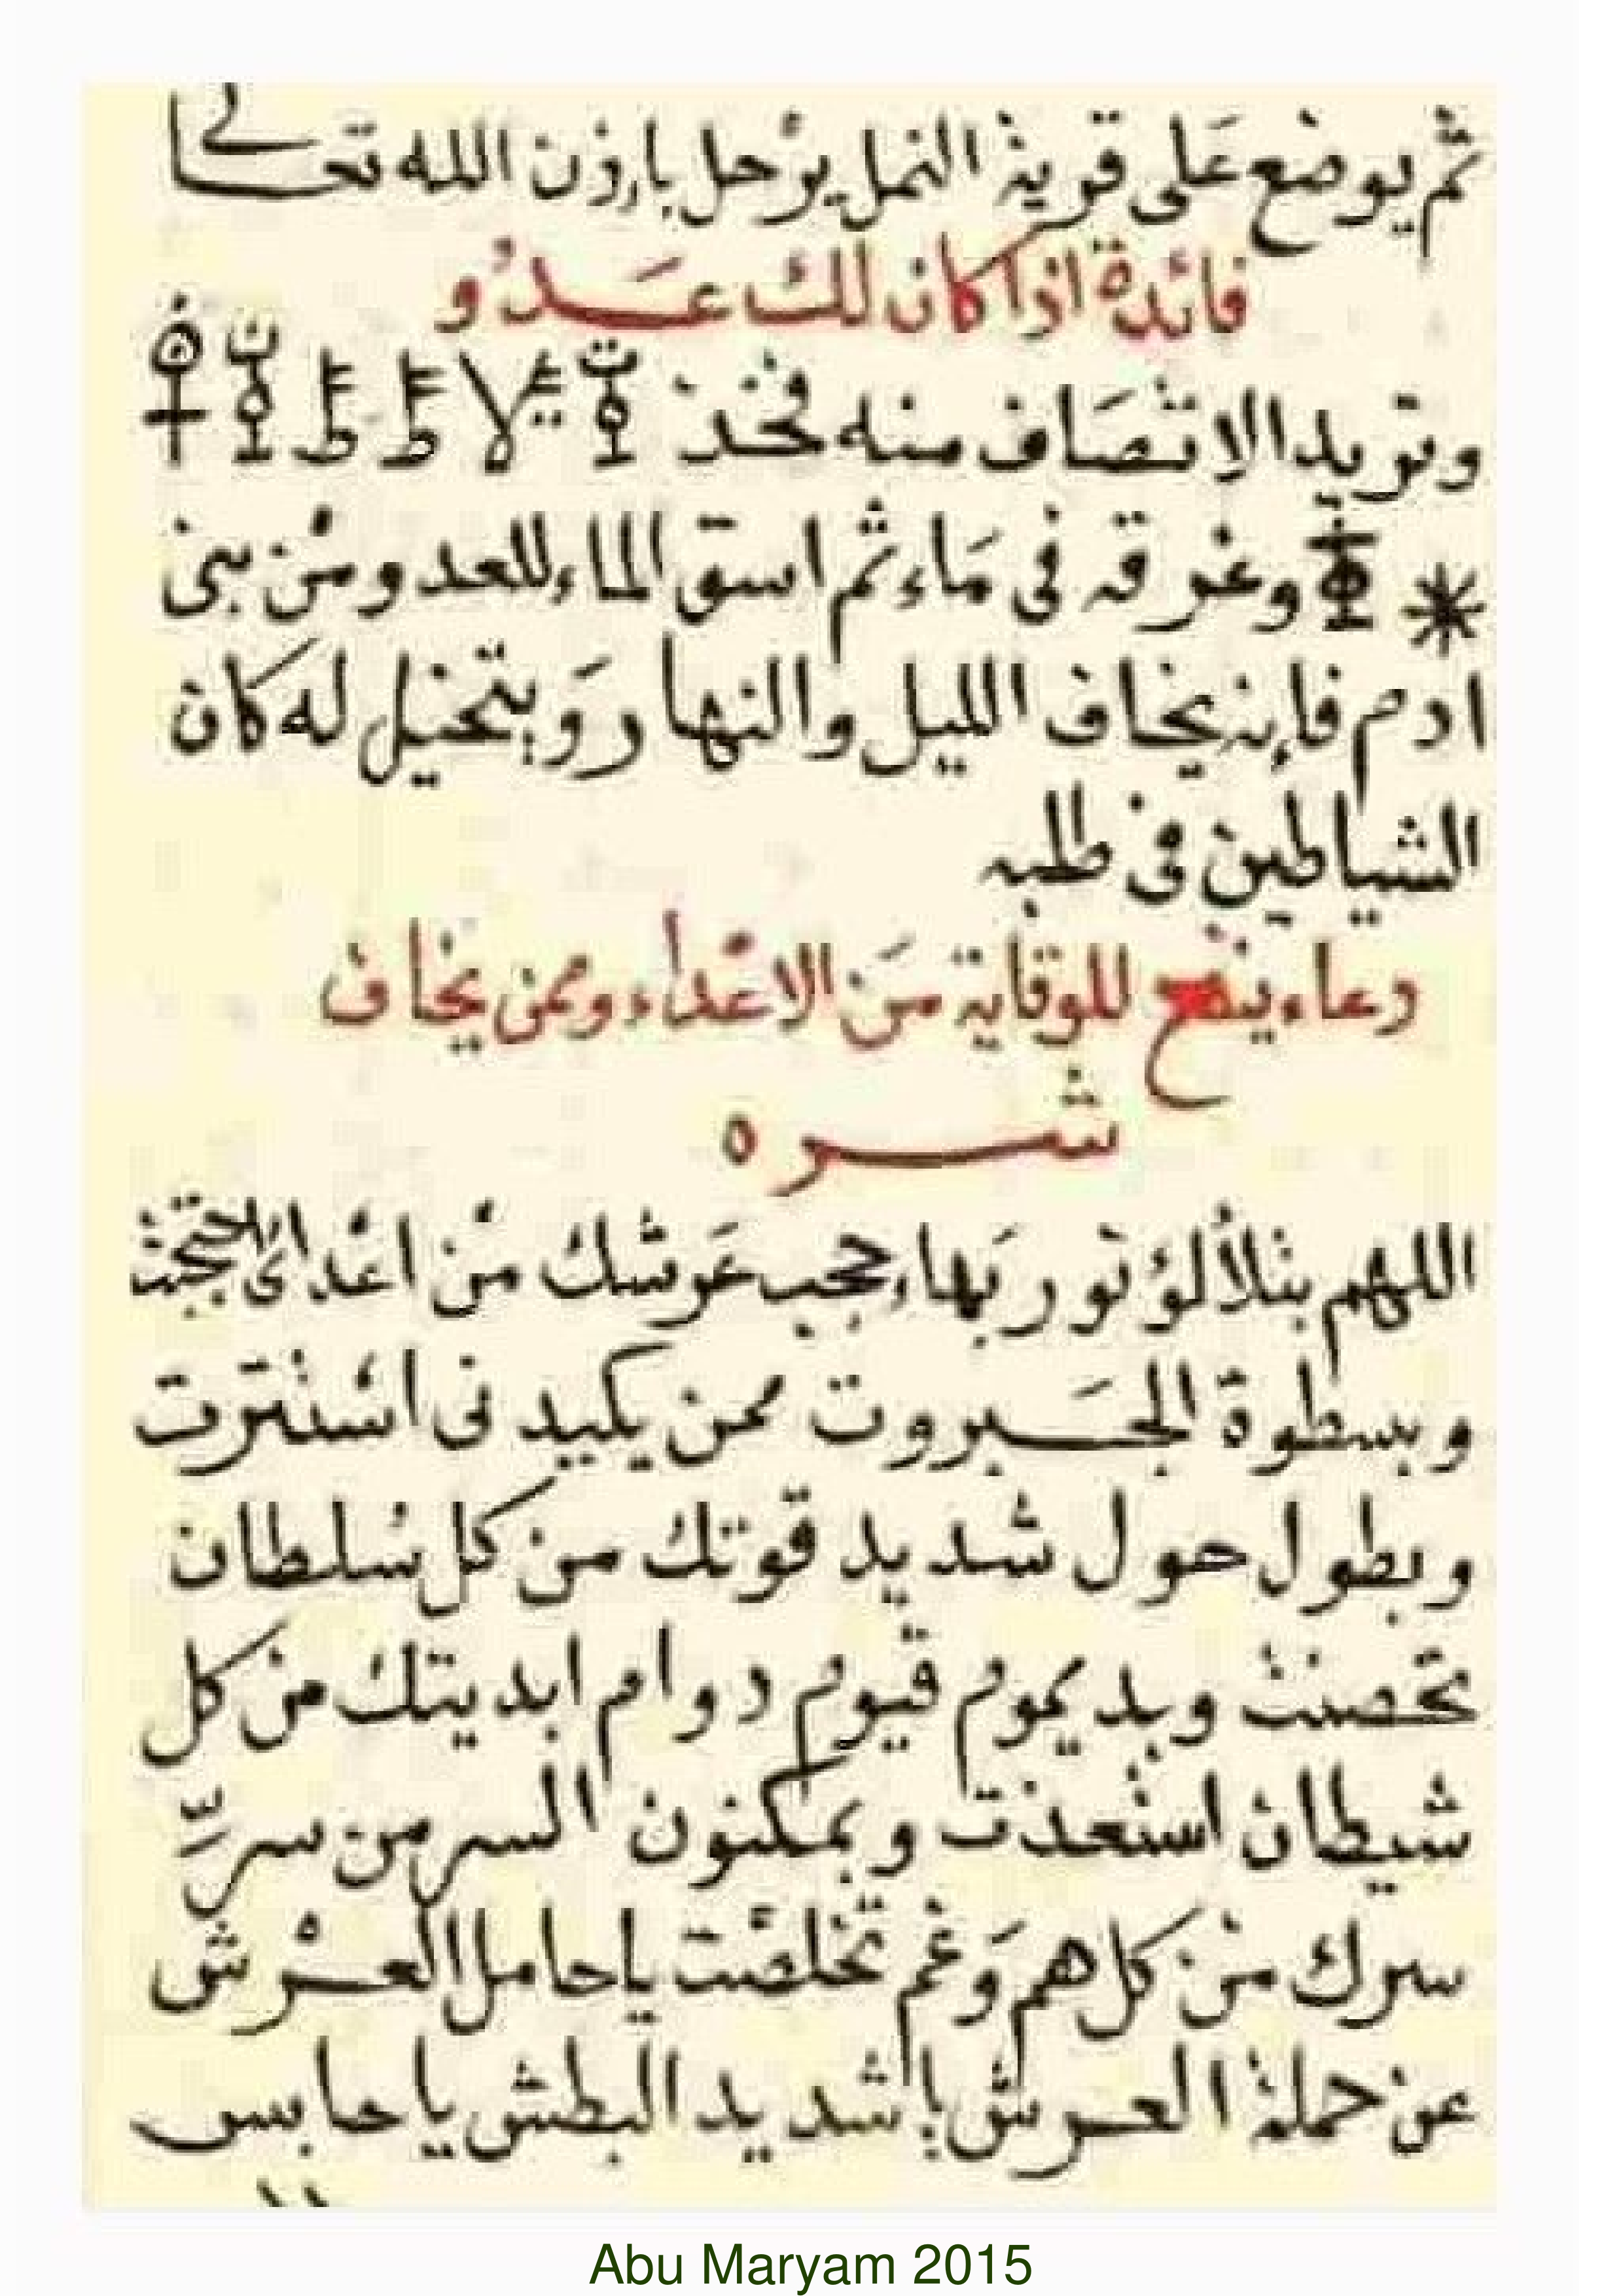 ثم يوضع على قرية النمل يرحل بإذن الله تعالى
فائدة اذا كان لك عدو
وتريد الانتصاف منه فخذ
وغرقه في ماء ثم اسق الماء للعدو من بني
ادم فإنه يخاف الليل والنهار ويتخيل له كان
الشياطين في طلبه
دعاء ينفع للوقاية من الاعداء وممن يخاف
شره
اللهم بتلألؤ نور بهاء حجب عرشك من اعدائي احتجبت
وبسطوة الجبروت ممن يكيدني استترت
وبطول حول شديد قوتك من كل سلطان
تحصنت وبديموم قيوم دوام ابديتك من كل
شيطان استعذت وبمكنون السر من سرّ
سرك من كل هم وغم تخلصت ياحامل العرش
عن حملة العرش يا شديد البطش يا حابس
Abu Maryam 2015